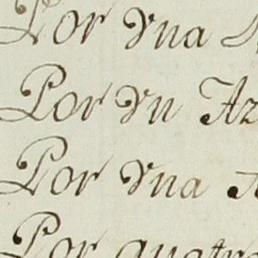 Por vna
Por vn Az
Por vna
Por quatro